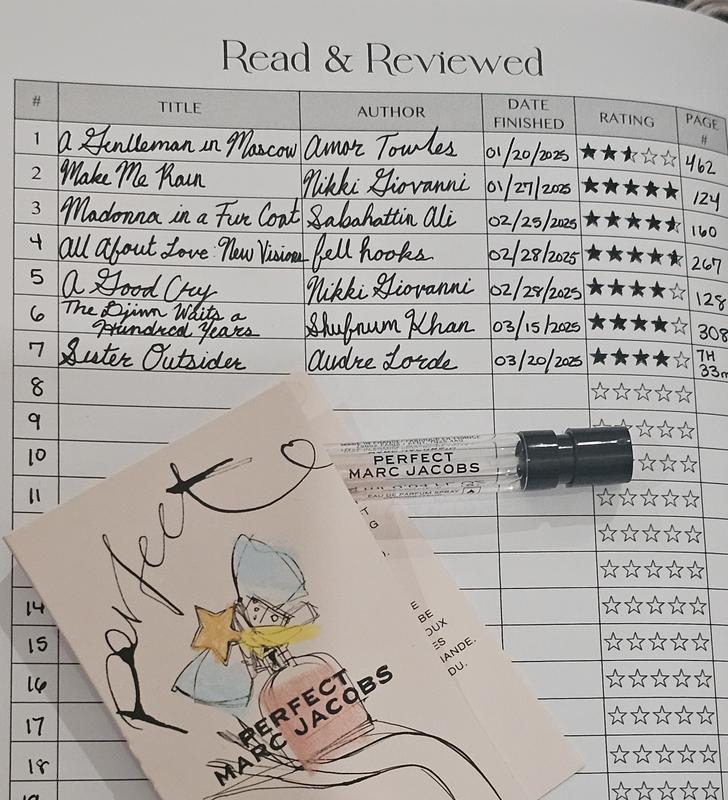 Read & Reviewed
# TITLE AUTHOR DATE FINISHED RATING PAGE #
1 A Gentleman in Moscow Amor Towles 01/20/2025 462
2 Make Me Rain Nikki Giovanni 01/27/2025 124
3 Madonna in a Fur Coat Sabahattin Ali 02/25/2025 160
4 All About Love: New Visions bell hooks 02/28/2025 267
5 A Good Cry Nikki Giovanni 02/28/2025 128
6 The Djinn Waits a
Hundred Years Shubnum Khan 03/15/2025 308
7 Sister Outsider Audre Lorde 03/20/2025 7H
33m
8
9
10
PERFECT
MARC JACOBS
EAU DE PARFUM SPRAY
11
perfect
14
15
16
17
18
19
E
BE
OUX
ES
MANDE.
DU.
PERFECT
MARC JACOBS